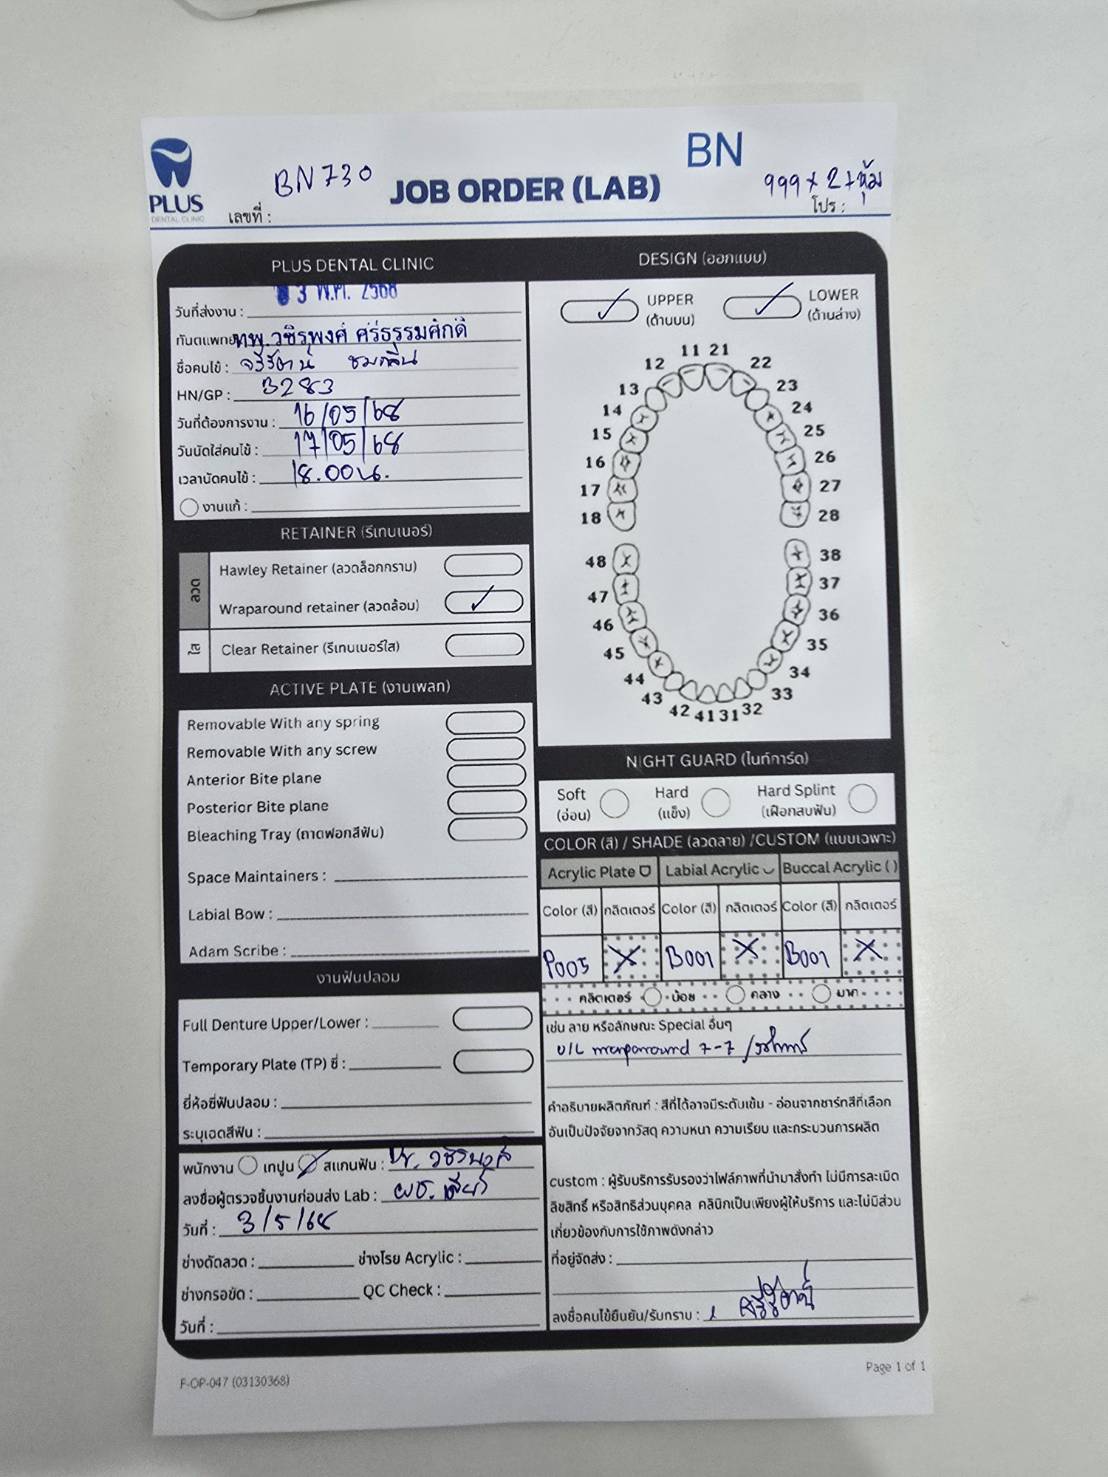 BN
PLUS
DENTAL CLINIC
BN730
JOB ORDER (LAB)
999 x 2 + หุ้ม
เลขที่ :
โปร :
PLUS DENTAL CLINIC
วันที่ส่งงาน : 3 พ.ค. 2568
ทันตแพทย์ ทพ. วชิรพงศ์ ศรีธรรมศักดิ์
ชื่อคนไข้ :
HN/GP : 3283
วันที่ต้องการงาน : 16/05/68
วันนัดใส่คนไข้ : 17/05/68
เวลานัดคนไข้ : 18.00น.
งานแก้ :
RETAINER (รีเทนเนอร์)
ลวด
Hawley Retainer (ลวดล็อกกราม)
Wraparound retainer (ลวดล้อม) ✓
ใส
Clear Retainer (รีเทนเนอร์ใส)
ACTIVE PLATE (งานเพลท)
Removable With any spring
Removable With any screw
Anterior Bite plane
Posterior Bite plane
Bleaching Tray (ถาดฟอกสีฟัน)
Space Maintainers :
Labial Bow :
Adam Scribe :
งานฟันปลอม
Full Denture Upper/Lower :
Temporary Plate (TP) ซี่ :
ยี่ห้อซี่ฟันปลอม :
ระบุเฉดสีฟัน :
พนักงาน เทปูน ✓ สแกนฟัน : Dr.
ลงชื่อผู้ตรวจชิ้นงานก่อนส่ง Lab :
วันที่ : 3/5/68
ช่างดัดลวด : ช่างโรย Acrylic :
ช่างกรอขัด : QC Check :
วันที่ :
DESIGN (ออกแบบ)
✓ UPPER ✓ LOWER
(ด้านบน) (ด้านล่าง)
11 21
12 22
13 23
14 24
15 25
16 26
17 27
18 28
48 38
47 37
46 36
45 35
44 34
43 33
42 41 31 32
NIGHT GUARD (ไนท์การ์ด)
Soft Hard Hard Splint
(อ่อน) (แข็ง) (เฝือกสบฟัน)
COLOR (สี) / SHADE (ลวดลาย) /CUSTOM (แบบเฉพาะ)
Acrylic Plate Labial Acrylic Buccal Acrylic ( )
Color (สี) กลิตเตอร์ Color (สี) กลิตเตอร์ Color (สี) กลิตเตอร์
P005 X B001 X B001 X
กลิตเตอร์ น้อย กลาง มาก
เช่น ลาย หรือลักษณะ Special อื่นๆ
U/L wraparound 7-7 /
คำอธิบายผลิตภัณฑ์ : สีที่ได้อาจมีระดับเข้ม - อ่อนจากชาร์ทสีที่เลือก
อันเป็นปัจจัยจากวัสดุ ความหนา ความเรียบ และกระบวนการผลิต
custom : ผู้รับบริการรับรองว่าไฟล์ภาพที่นำมาสั่งทำ ไม่มีการละเมิด
ลิขสิทธิ์ หรือสิทธิส่วนบุคคล คลินิกเป็นเพียงผู้ให้บริการ และไม่มีส่วน
เกี่ยวข้องกับการใช้ภาพดังกล่าว
ที่อยู่จัดส่ง :
ลงชื่อคนไข้ยืนยัน/รับทราบ :
F-OP-047 (03130368)
Page 1 of 1